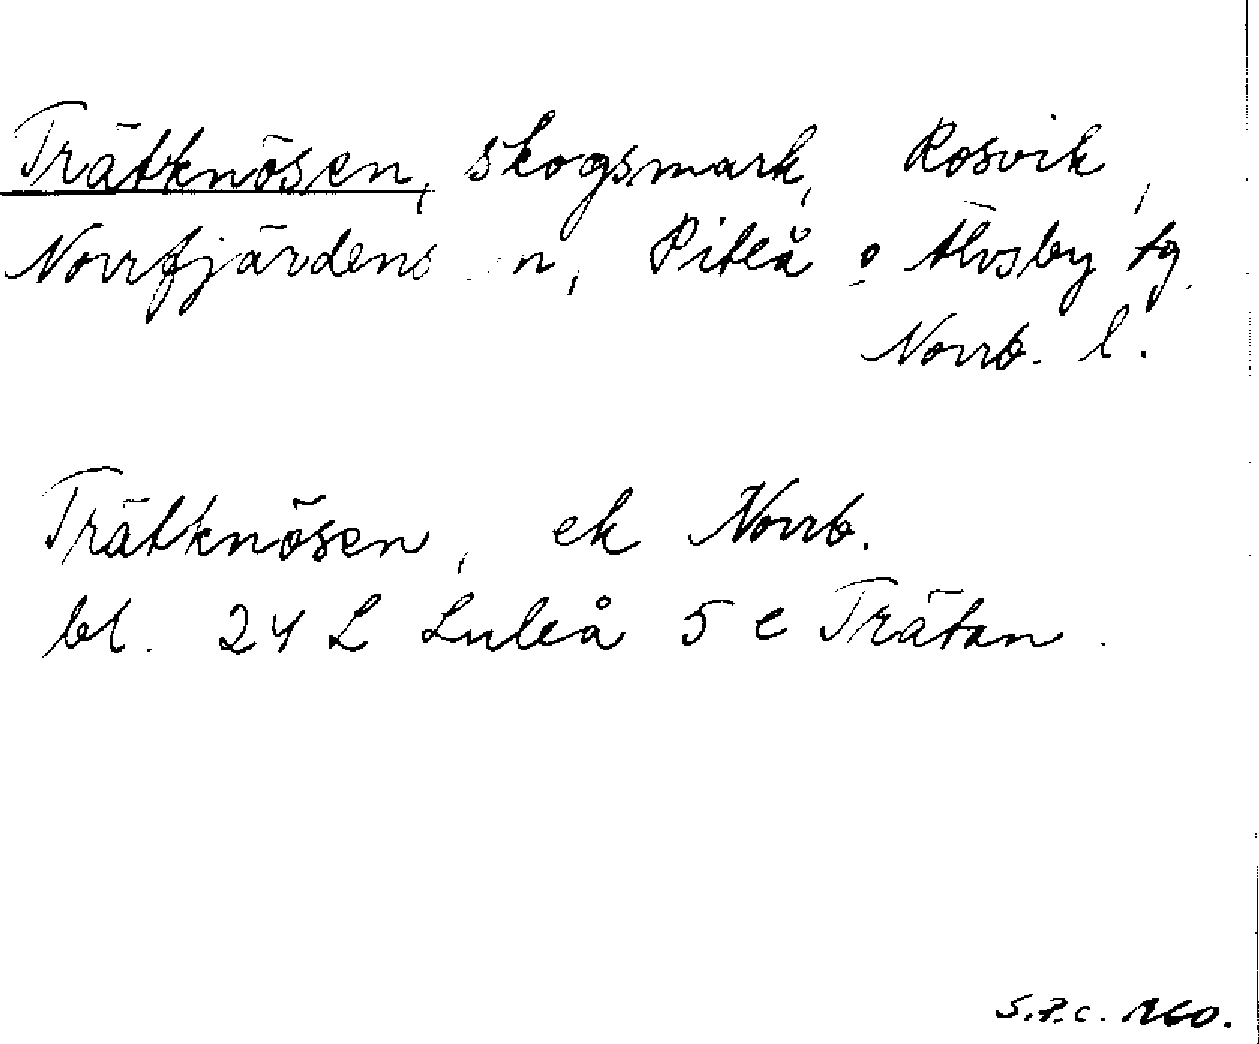 Trätknösen, skogsmark, Rosvik,
Norrfjärdens sn, Piteå o Älvsby tg.
Norrb. l.
Trätknösen, ek Norrb.
bl. 24 L Luleå 5 e Trätan.
S.P.C.